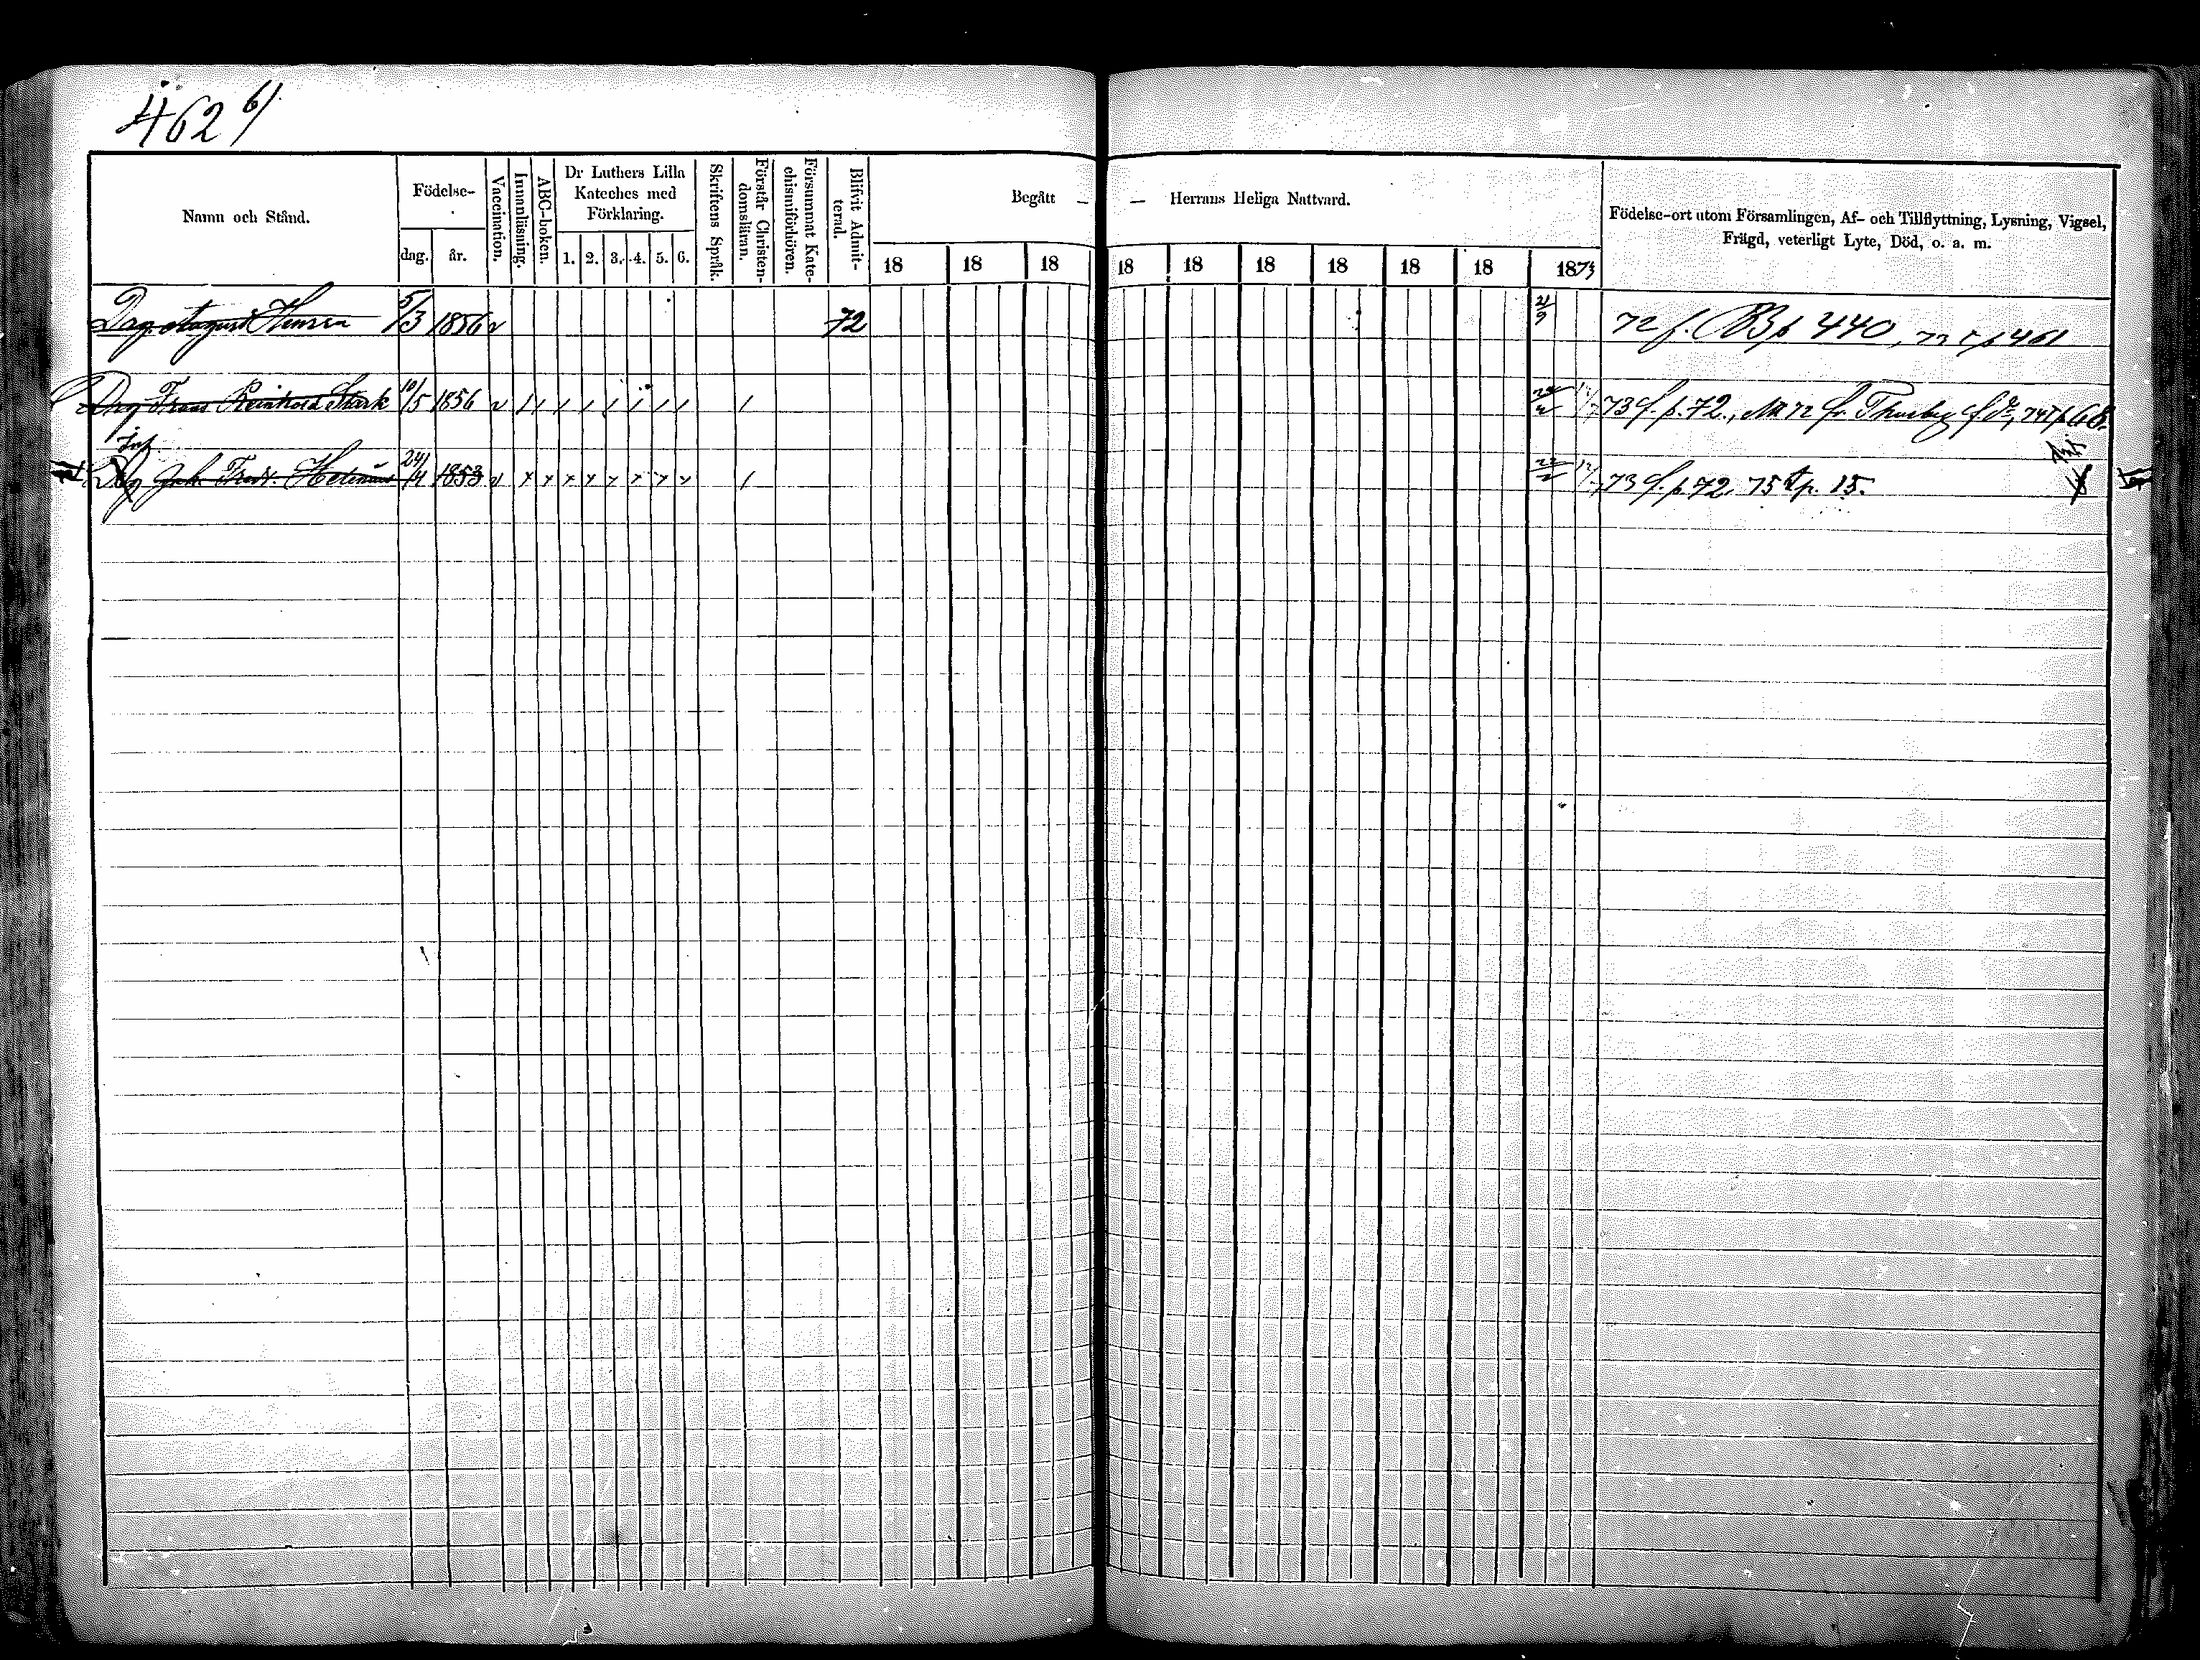 462 b/.
Namn och Stånd.
Födelse-
dag.
år.
Vaccination.
Innanläsning.
ABC-boken.
Dr Luthers Lilla
Kateches med
Förklaring.
1. 2. 3. 4. 5. 6.
Skriftens Språk.
Förstår Christen-
domsläran.
Försummat Kate-
chismiförhören.
Blifvit Admit-
terad.
Begått — — Herrans Heliga Nattvard.
18 18 18 18 18 18 18 18 18 1873
Födelse-ort utom Församlingen, Af- och Tillflyttning, Lysning, Vigsel,
Frägd, veterligt Lyte, Död, o. a. m.
Drg August 5/3 1856 v 72 72 f. p 440, 73 p 461
Drg Frans Reinhold Stark 10/5 1856 v 73 f. p. 72., 72 fr. Thusby
Joh. Fredr. 24/4 1853 v 73 f. p. 72, 75 p. 15.